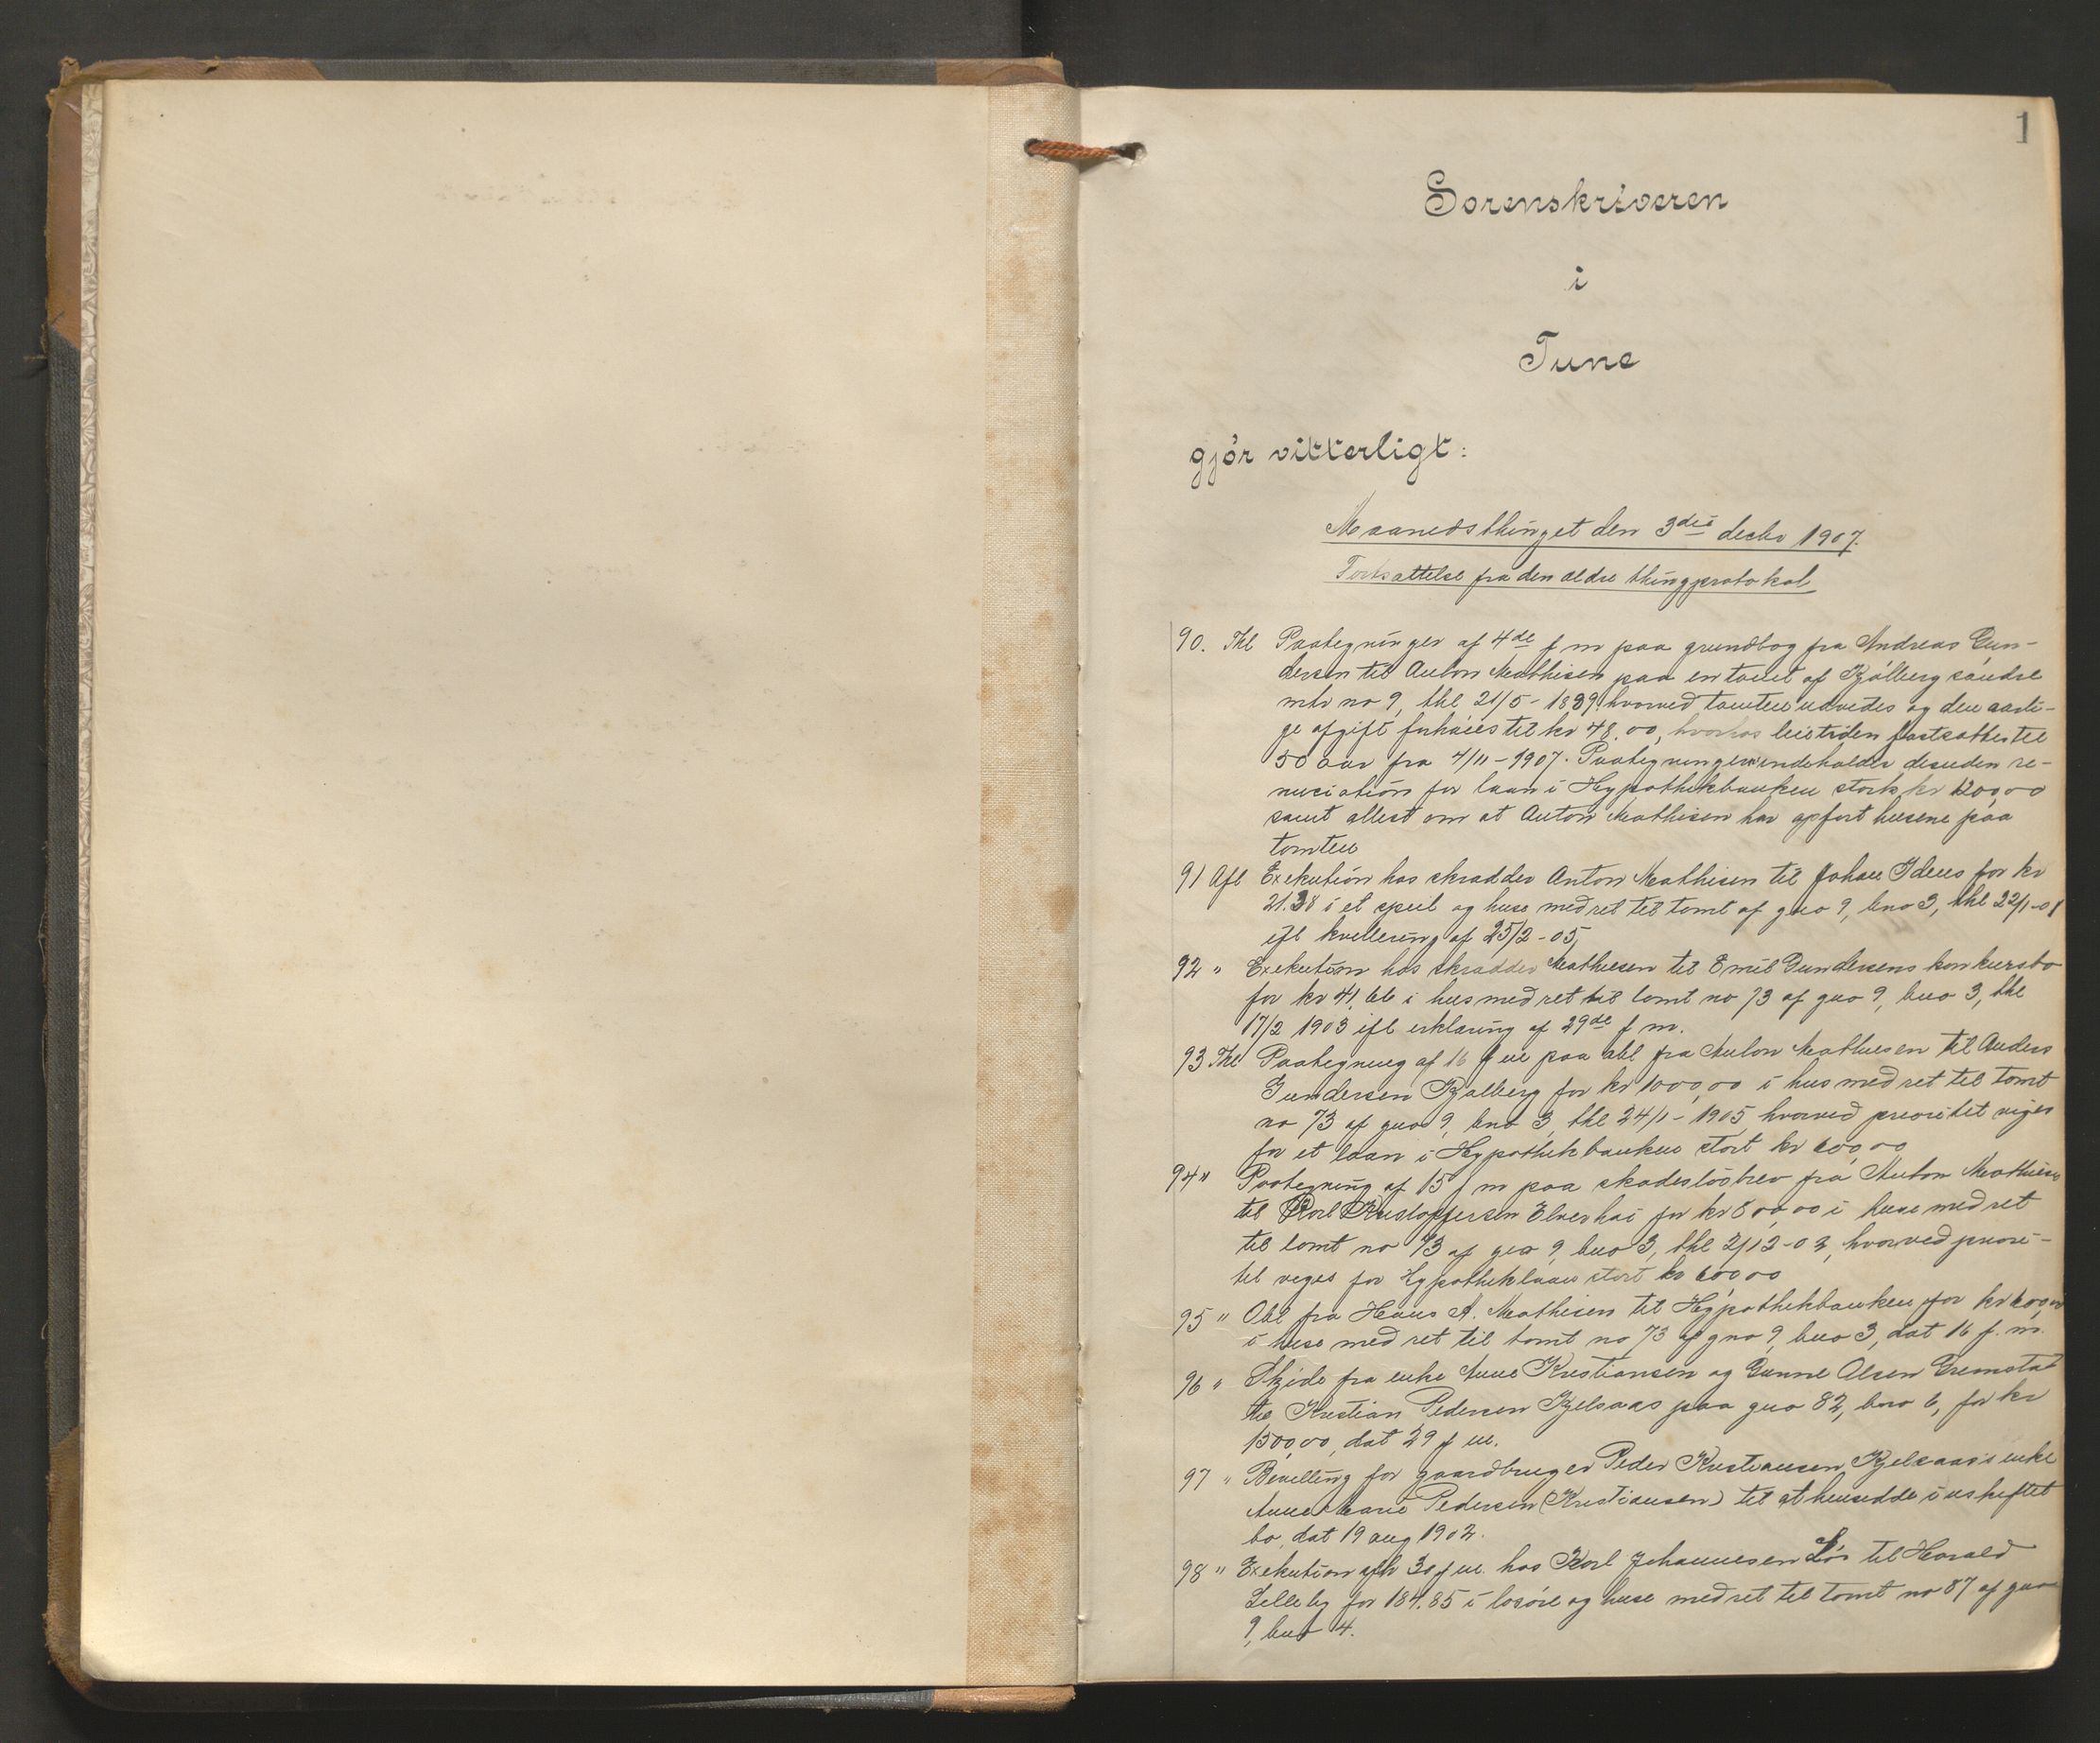 1
Sorenskriveren
i
Tune
gjör vitterligt:
Maanedsthinget den 3die decbr 1907.
Fortsættelse fra den ældre thingprotokol
90. Thl Paategninger af 4de f m paa grundbog fra Andreas Gun-
dersen til Anton Mathisen paa en tomt af Kjölberg söndre
mtr no 9, thl 21/5-1899 hvorved tomten udvides og den aarli-
ge afgift forhöies til kr 48.00, hvorhos leietiden fastsættes til
50 aar fra 4/11-1907. Paategningen indeholder desuden re-
nuciation for laan i Hypothekbanken stort kr 1200,00
samt attest om at Anton Mathisen har opfört husene paa
tomten
91 Afl Exekution hos skrædder Anton Mathisen til Johan Idens for kr
21.38 i et speil og huse med ret til tomt af gno 9, bno 3, thl 22/1-01
ifl kvittering af 25/2-05,
92 " Exekution hos skrædder Mathiesen til Emil Gundersens konkursbo
for kr 41,66 i hus med ret til tomt no 73 af gno 9, bno 3, thl
17/2 1903 ifl erklæring af 29de f m.
93 Thl Paategning af 16 f m paa obl fra Anton Mathiesen til Anders
Gundersen Kjølberg for kr 1000,00 i hus med ret til tomt
no 73 af gno 9, bno 3, thl 24/1-1905, hvorved prioritet viges
for et laan i Hypothekbanken stort kr 600,00
94 " Paategning af 15 f m paa skadeslösbrev fra Anton Mathisen
til Karl Kristoffersen Elverhöi for kr 500,00 i huse med ret
til tomt no 73 af gno 9, bno 3, thl 2/12-02, hvorved priori-
tet viges for Hypotheklaan stort kr 600,00
95 " Obl fra Hans A. Mathisen til Hypothekbanken for kr 600,00
i huse med ret til tomt no 73 af gno 9, bno 3, dat 16 f. m.
96 " Skjöde fra enke Anne Kristiansen og Gunnel Olsen Grønstad
til Kristian Pedersen Kjelsaas paa gno 82, bno 6, for kr
1500,00, dat 29 f m.
97 " Bevilling for gaardbruger Peder Kristiansen Kjelsaas's enke
Anne Marie Pedersen (Kristiansen) til at hensidde i uskiftet
bo, dat 19 aug 1902.
98 " Exekution afh 30 f m. hos Karl Johannesen Lös til Harald
Lilleby for 184.85 i lösöre og huse med ret til tomt no 87 af gno
9, bno 4.